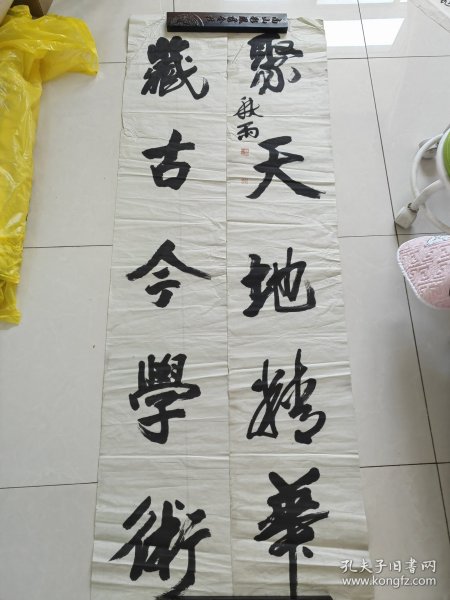 聚天地精华
秋雨
藏古今學術
孔夫子旧书网
www.kongfz.com